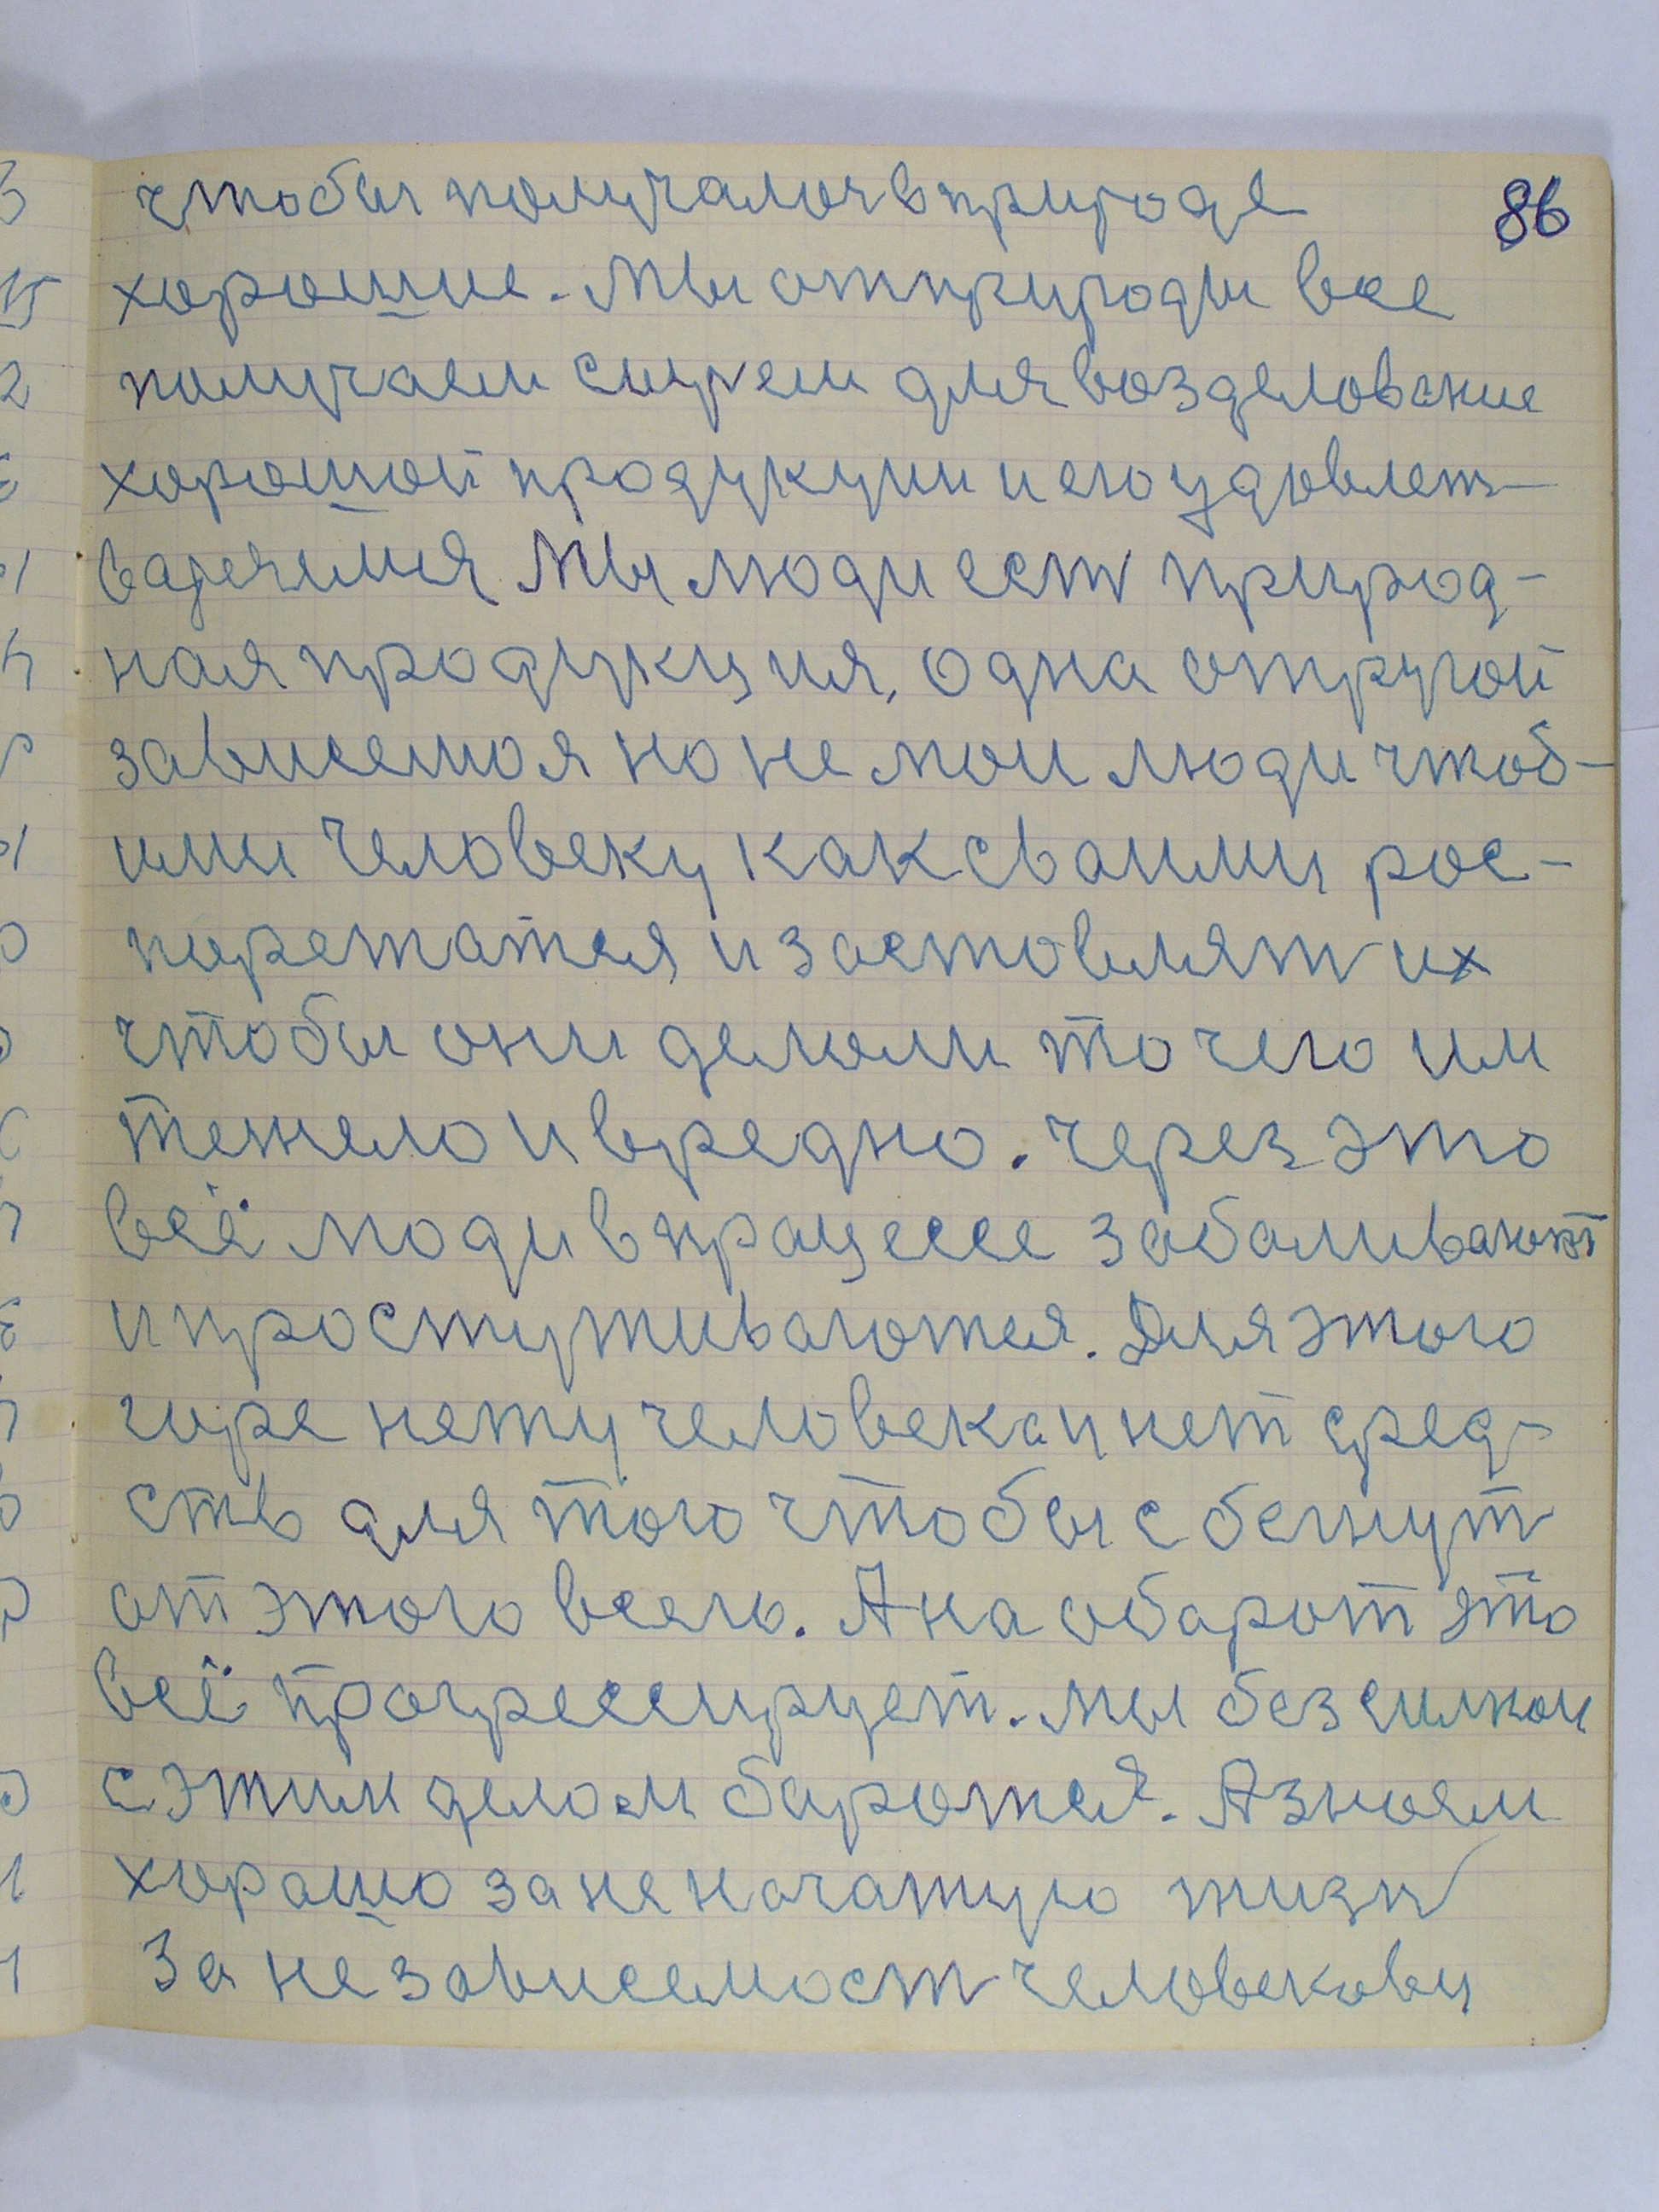 86
чтобы получалось в природе
хорошие. Мы от природы все
получаем сырем для возделование
хорошой продукции и его удовлет-
варяемся Мы люди ест природ-
ная продукция, одна отругой
зависемоя но не мои люди чтоб-
ими человеку как сваими рос-
поряжатся и зостовлят их
чтобы они делоли то чего им
тежело и вредно. через это
всё люди в працессе заболивают
и простуживаются. Для этого
горе нету человека и нет сред-
ств для того чтобы сбегнут
от этого всего. А на обарот это
всё прогрессирует. мы без силнои
с этим делом боротся. А знаем
хорошо за не начатую жизн
За не зовисемост человекову